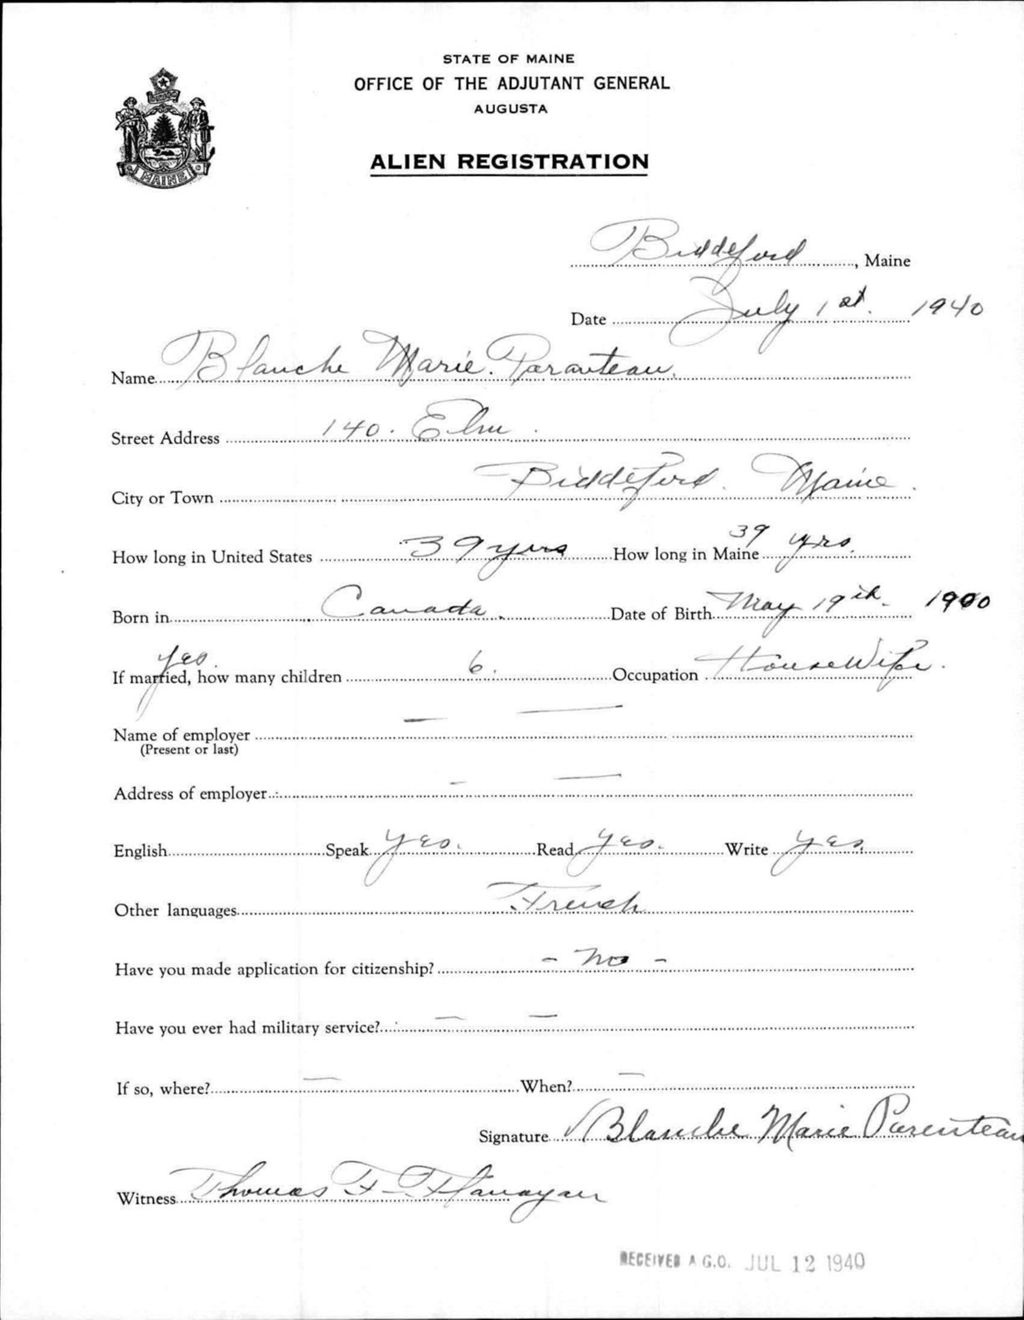 STATE OF MAINE
OFFICE OF THE ADJUTANT GENERAL
AUGUSTA
ALIEN REGISTRATION
MAINE
Biddeford, Maine
Date July 1st. 1940
Name Blanche Marie. Paranteau.
Street Address 140. Elm.
City or Town Biddeford. Maine.
How long in United States 39 yrs How long in Maine 39 yrs.
Born in Canada. Date of Birth May 19th. 1900
yes.
If married, how many children 6. Occupation HouseWife.
Name of employer — —
(Present or last)
Address of employer - —
English Speak yes. Read yes. Write yes.
Other languages French
Have you made application for citizenship? - No -
Have you ever had military service? — —
If so, where? — When? —
Signature Blanche Marie Parenteau
Witness Thomas F. Flanagan
RECEIVED A.G.O. JUL 12 1940